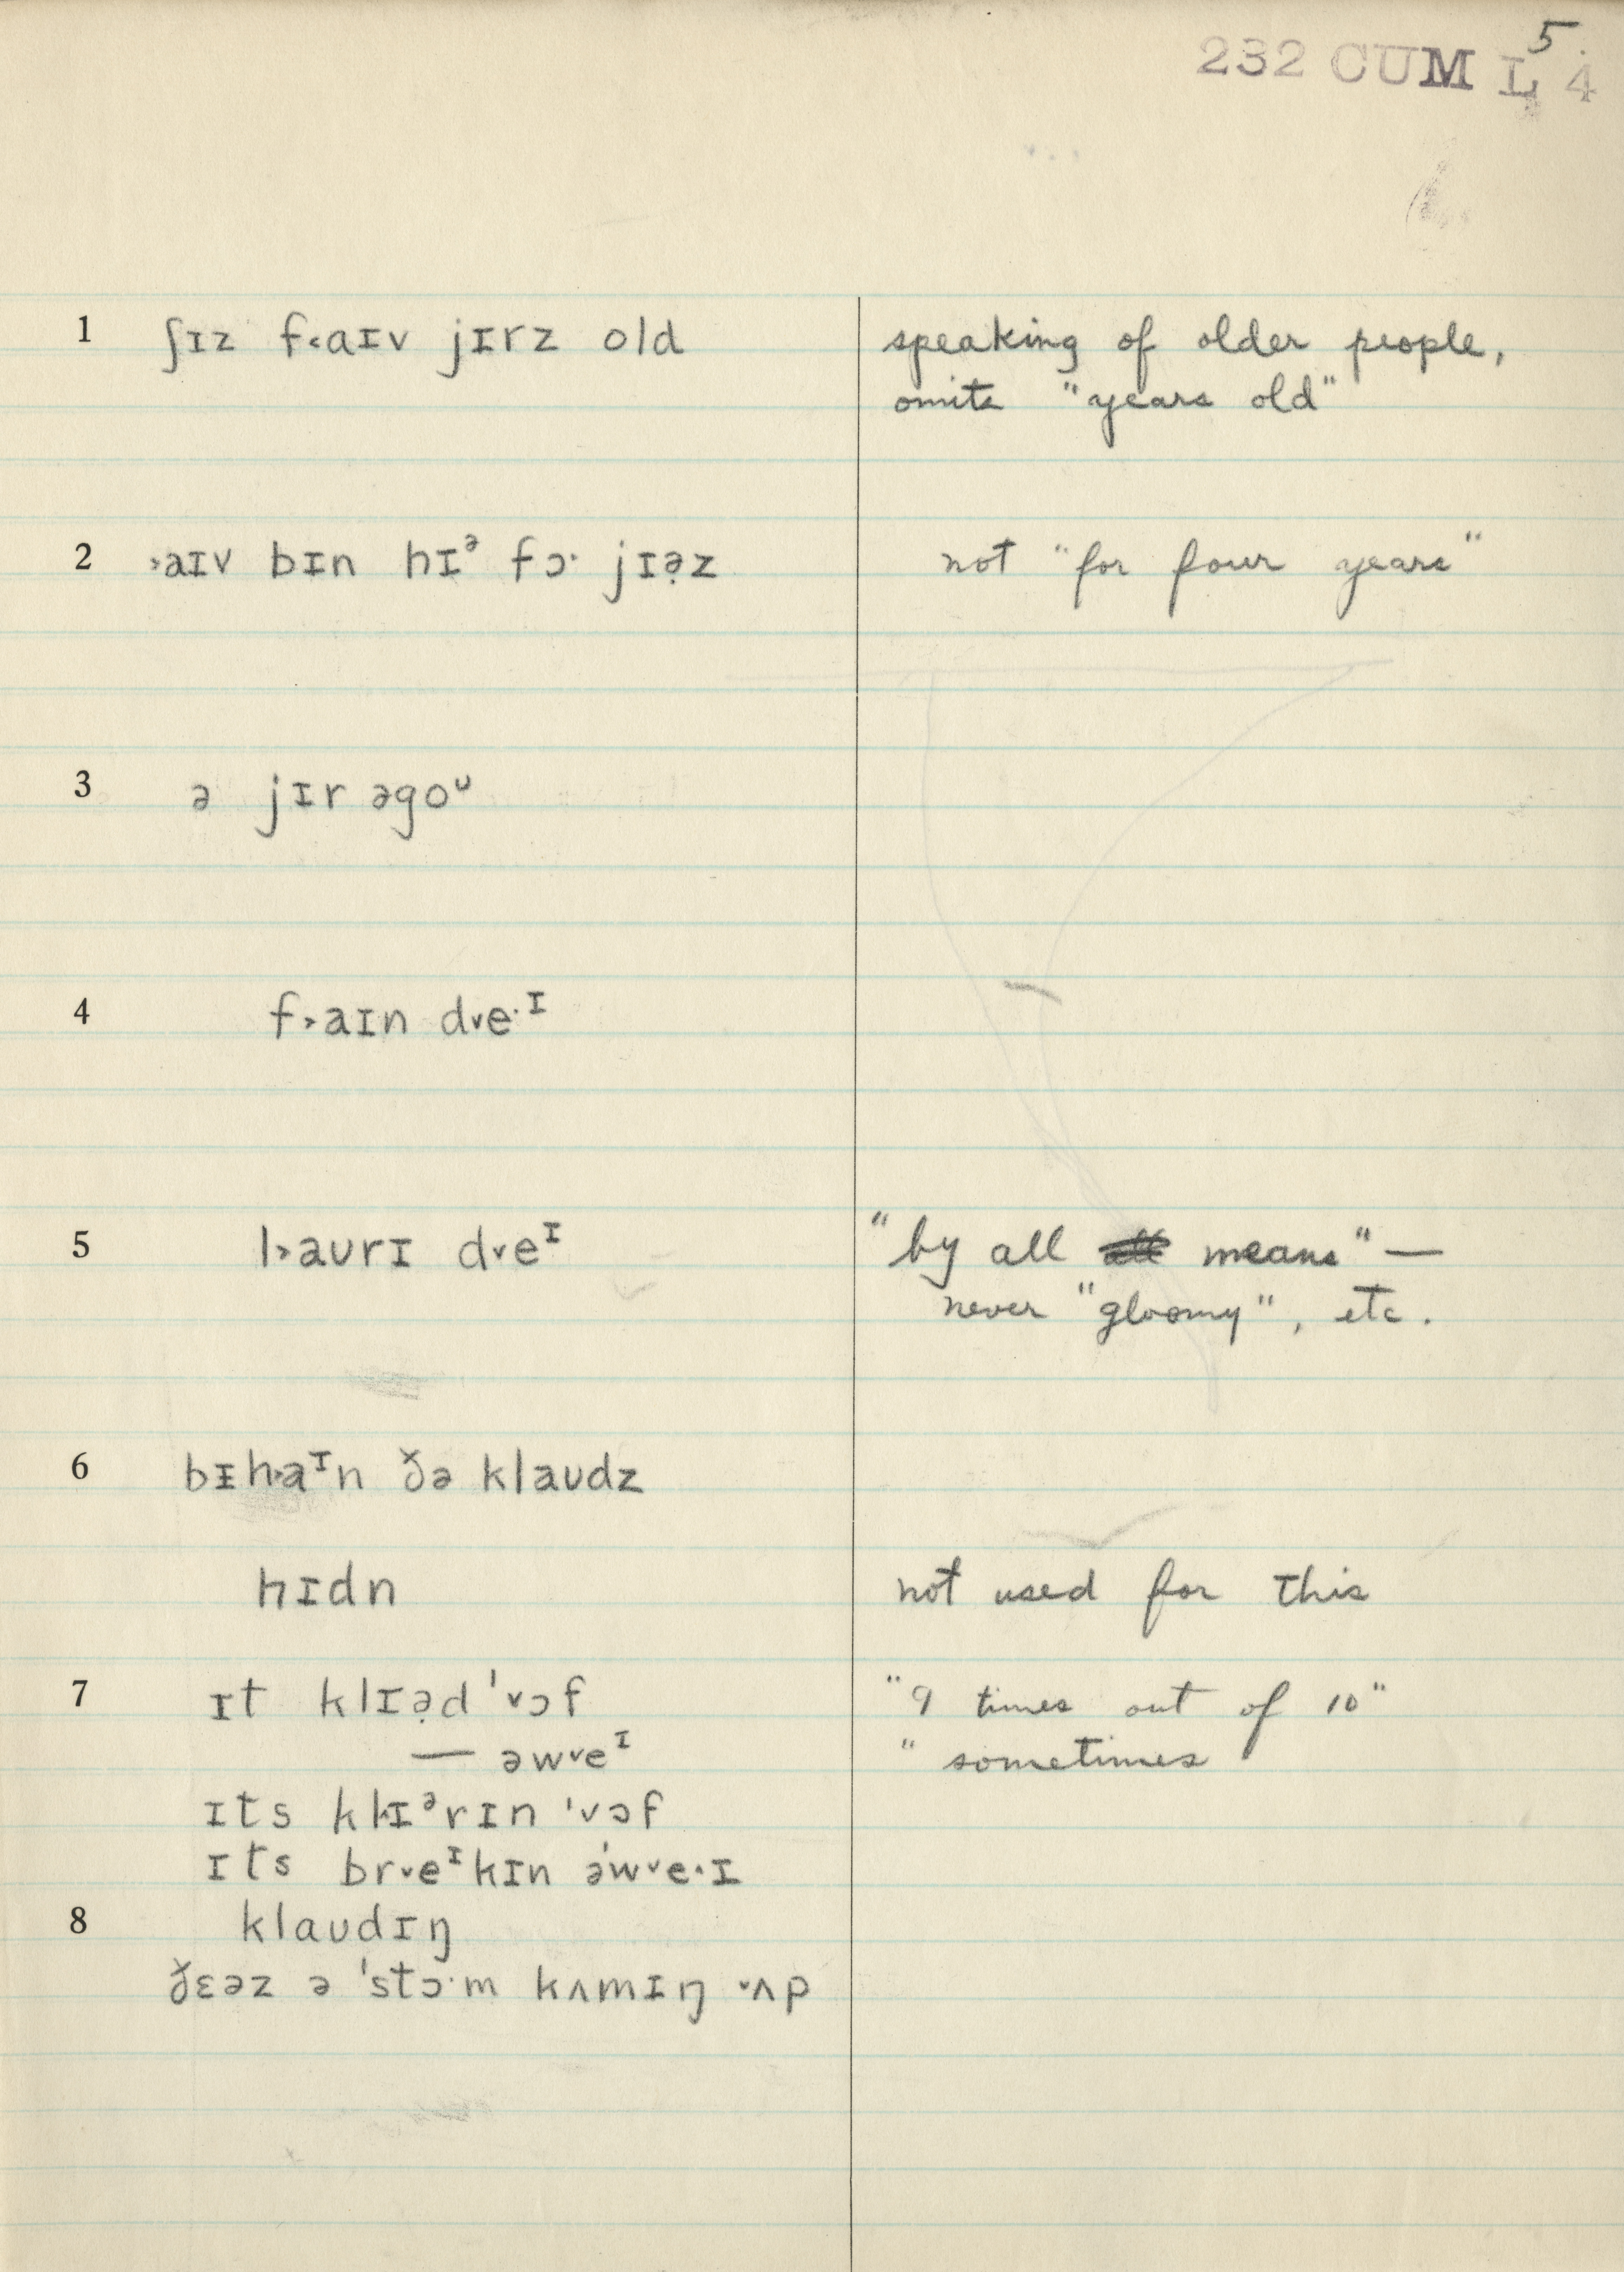 5.
232 CUM L 4
1 ʃɪz f˂aɪv jɪrz old speaking of older people,
omits "years old"
2 ˃aɪv bɪn hɪᵊ fɔ· jɪə̣z not "for four years"
3 ə jɪr əgoᶷ
4 f˃aɪn d˅e·ᶦ
5 l˃aʊrɪ d˅eᶦ "by all means" —
never "gloomy", etc.
6 bɪh˃aᶦn ðə klaʊdz
hɪdn not used for this
7 ɪt klɪə̣d ˈ˅ɔf "9 times out of 10"
— əw˅eᶦ " sometimes
ɪts klɪᵊrɪn ˈ˅ɔf
ɪts br˅eᶦkɪn əˈw˅e·ɪ
8 klaʊdɪŋ
ðɛəz ə ˈstɔ·m kʌmɪŋ ˅ʌp